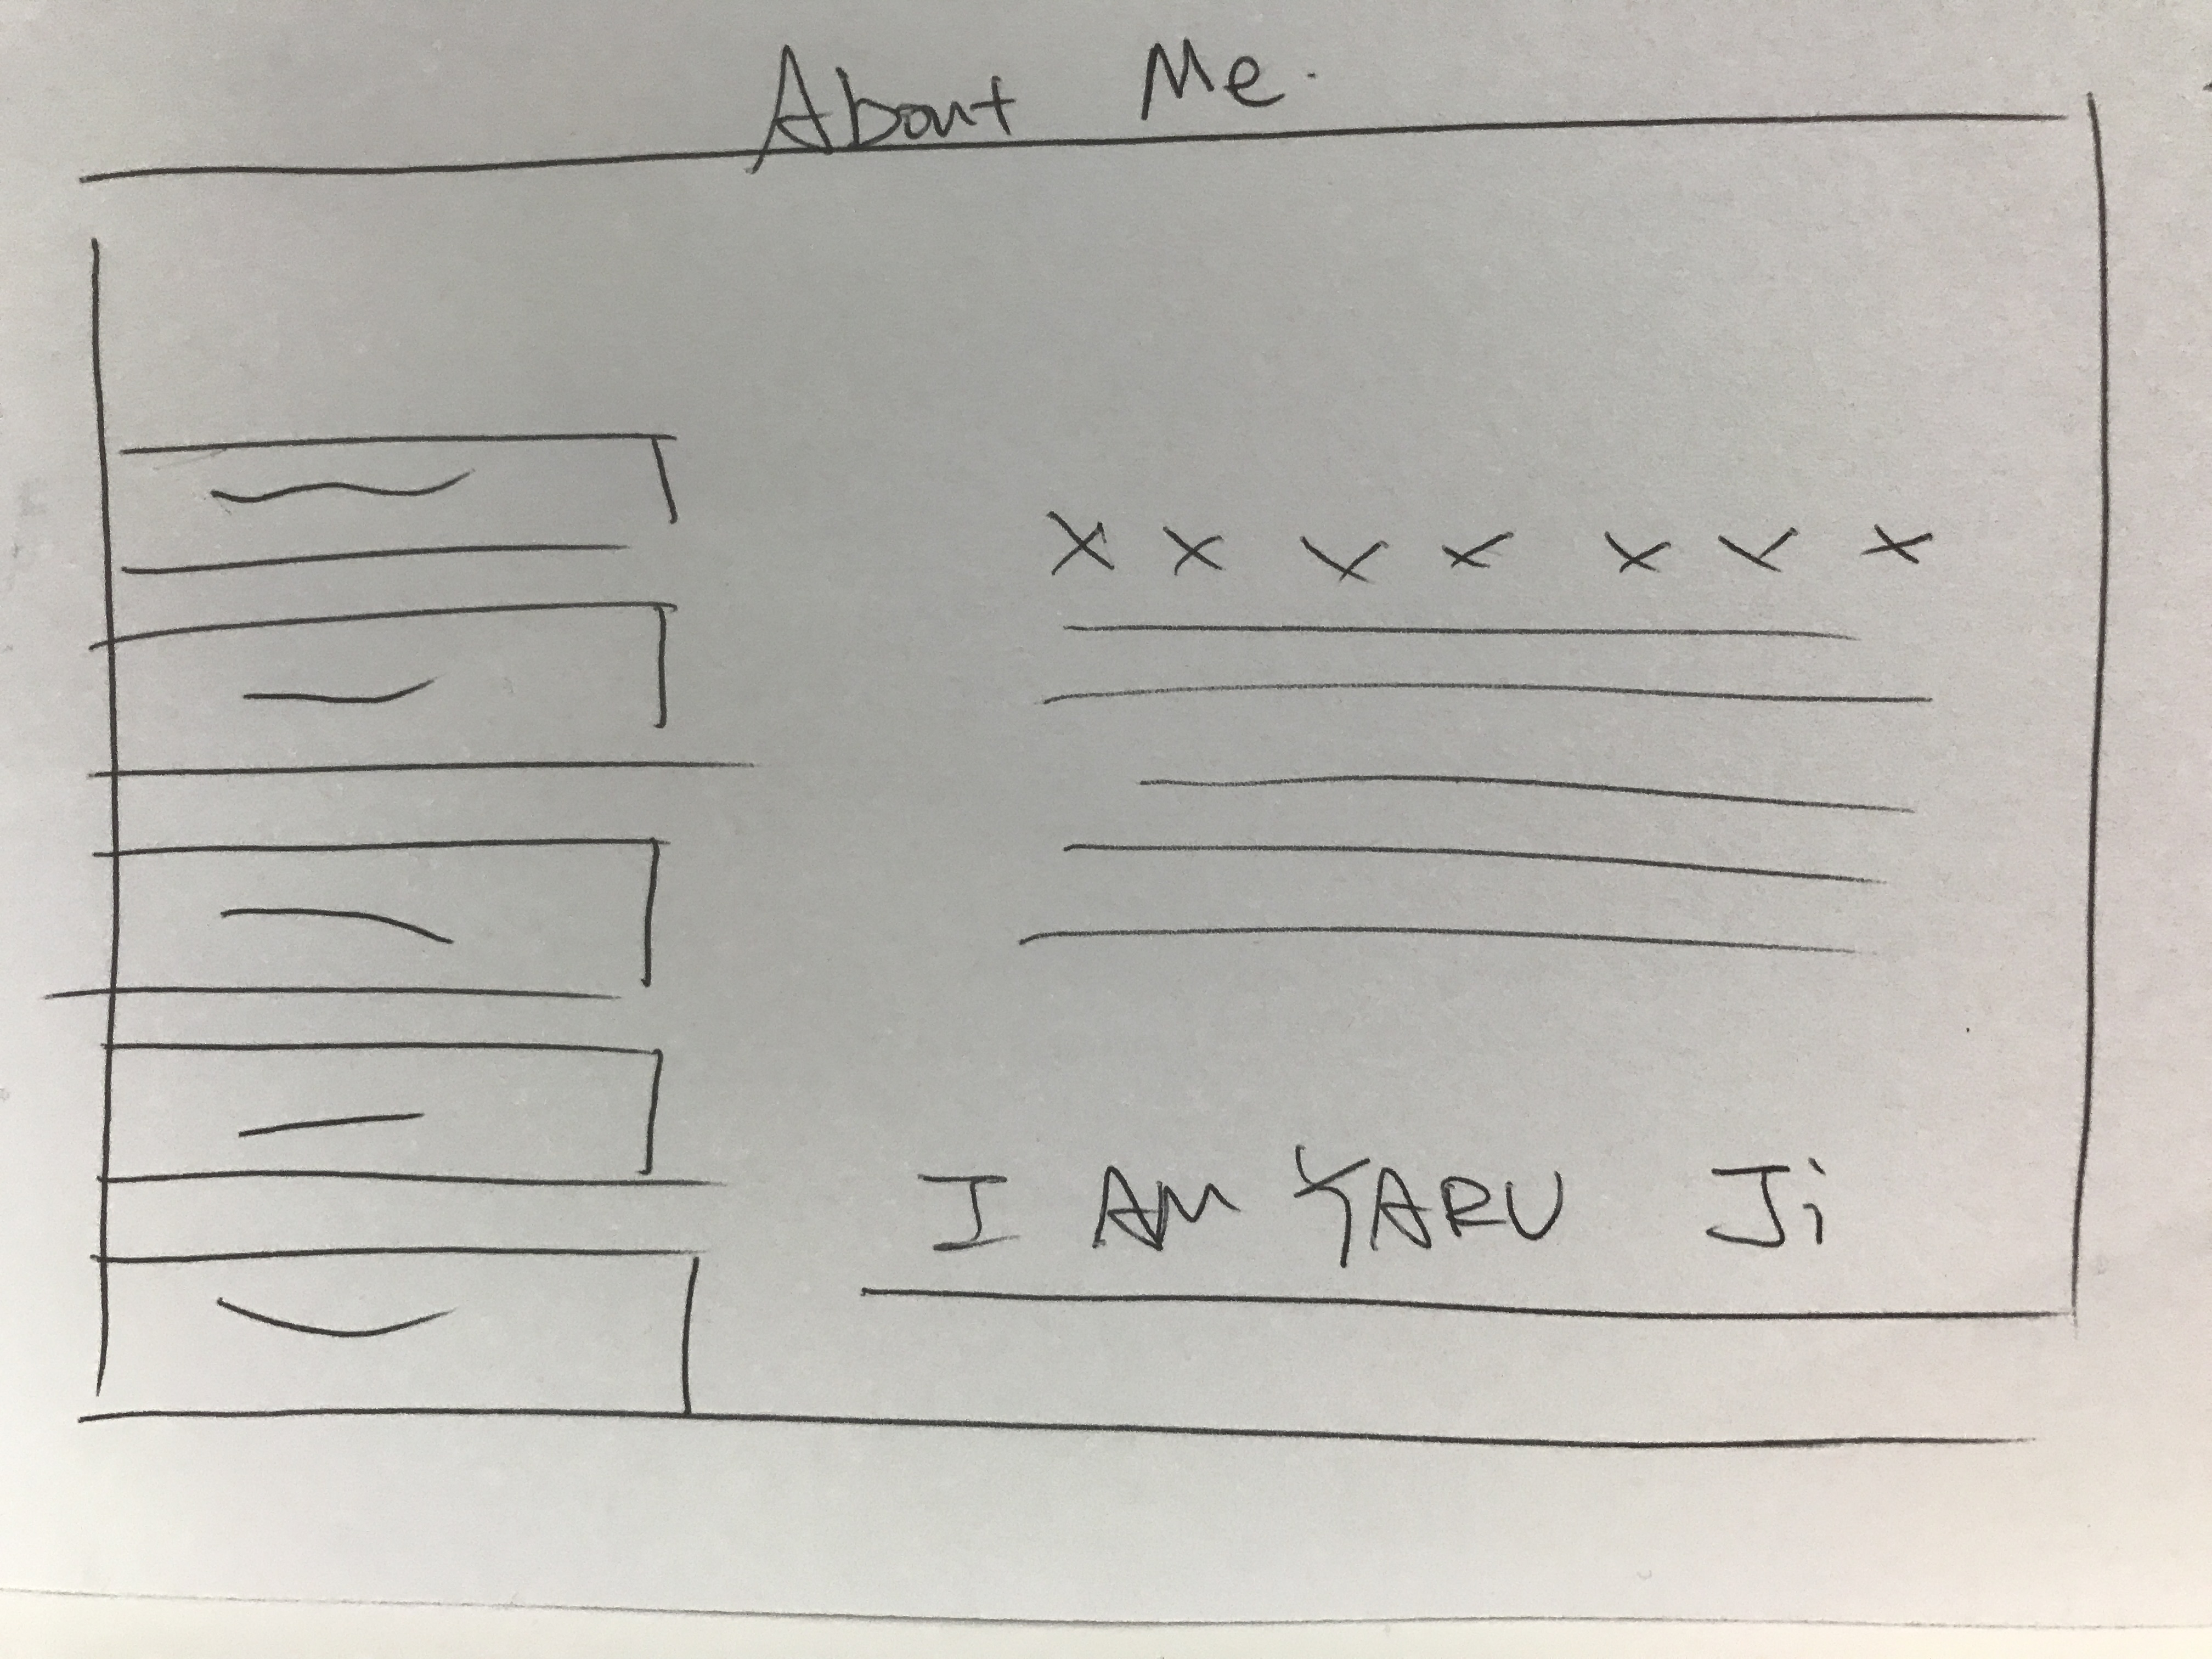 About Me.
x x x x x x x
I AM YARU Ji